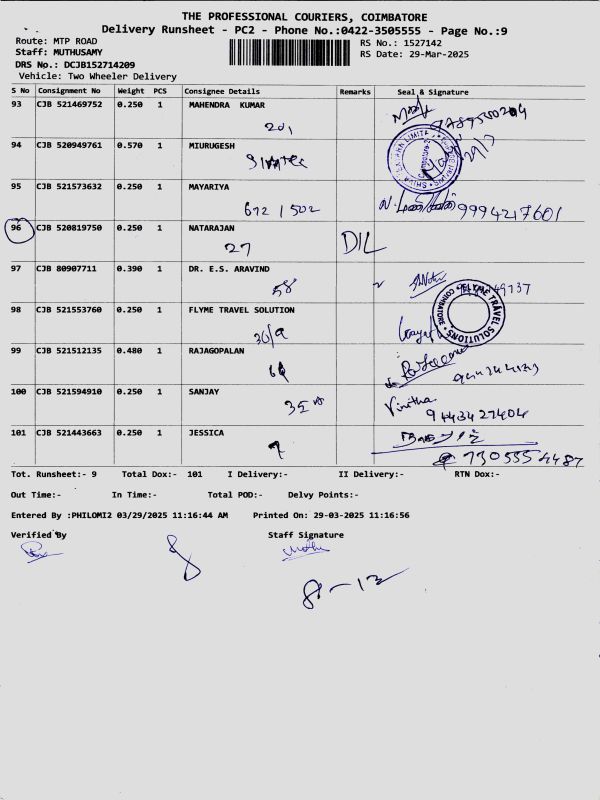 THE PROFESSIONAL COURIERS, COIMBATORE
Delivery Runsheet - PC2 - Phone No.:0422-3505555 - Page No.:9
Route: MTP ROAD
RS No.: 1527142
Staff: MUTHUSAMY
RS Date: 29-Mar-2025
DRS No.: DCJB152714209
Vehicle: Two Wheeler Delivery
S No Consignment No Weight PCS Consignee Details Remarks Seal & Signature
93 CJB 521469752 0.250 1 MAHENDRA KUMAR
201
94 CJB 520949761 0.570 1 MIURUGESH
95 CJB 521573632 0.250 1 MAYARIYA
672 / 502 9994217601
96 CJB 520819750 0.250 1 NATARAJAN
27 DIL
97 CJB 80907711 0.390 1 DR. E.S. ARAVIND
58
98 CJB 521553760 0.250 1 FLYME TRAVEL SOLUTION
36/9
FLYME TRAVEL SOLUTIONS COIMBATORE
99 CJB 521512135 0.480 1 RAJAGOPALAN
100 CJB 521594910 0.250 1 SANJAY
35 Vinitha
9443427404
101 CJB 521443663 0.250 1 JESSICA
7 7305554487
Tot. Runsheet:- 9 Total Dox:- 101 I Delivery:- II Delivery:- RTN Dox:-
Out Time:- In Time:- Total POD:- Delvy Points:-
Entered By :PHILOMI2 03/29/2025 11:16:44 AM Printed On: 29-03-2025 11:16:56
Verified By Staff Signature